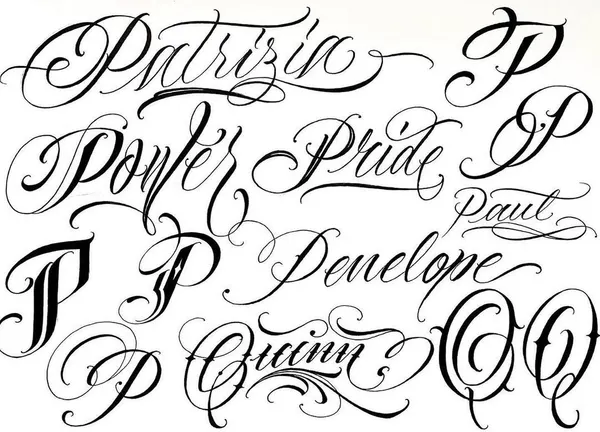 Patrizia P
Power Pride P
Paul
P P Penelope
P Quinn Q Q